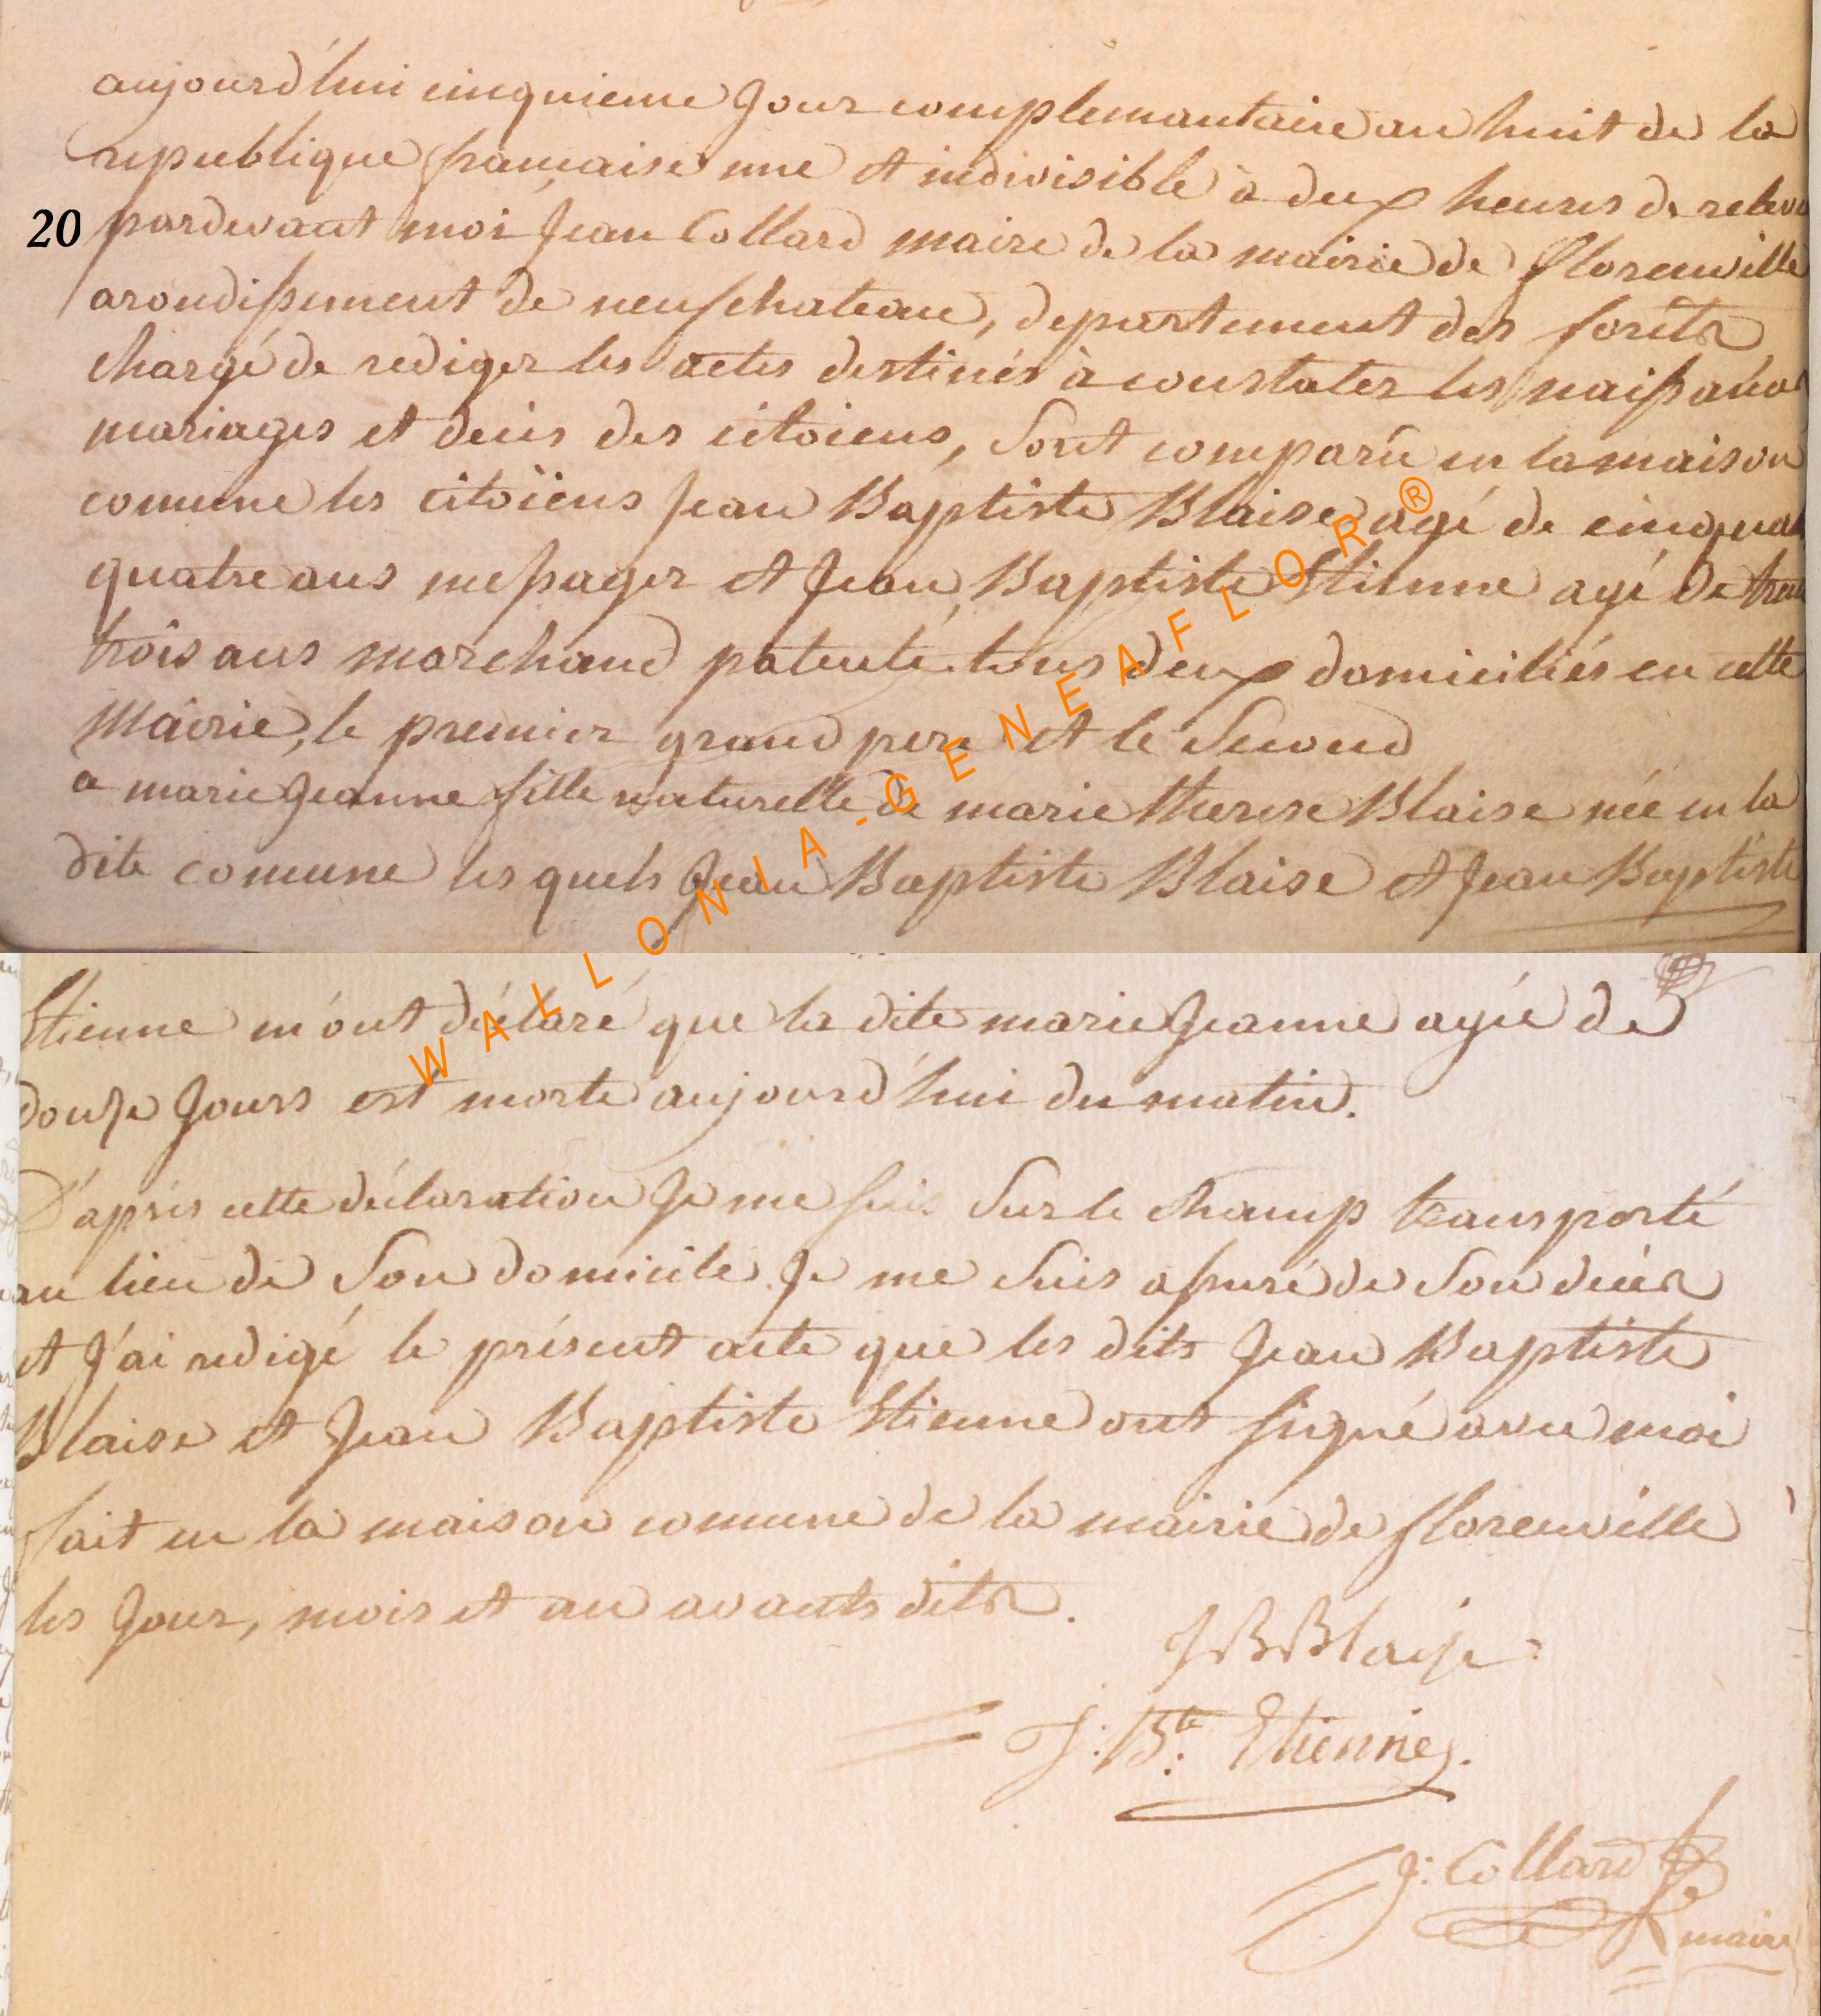 aujourd'hui cinquieme Jour complemantaire an huit de la
republique française une et indivisible à deux heures de releve
20 pardevant moi Jean Collard maire de la mairie de florenville
arondissement de neufchateau, departement des forêts
chargé de rediger les actes destinés à constater les naissances
mariages et decis des citoiens, Sont comparu en la maison
comune les citoïens Jean Baptiste Blaise agé de cinquante
quatre ans messager et Jean Baptiste Etienne agé de trente
trois ans marchand patenté tous deux domiciliés en cette
Mairie, le premier grand pere et le Second
a marie Jeanne fille naturelle de marie therese Blaise née en la
dite comune les quels Jean Baptiste Blaise et Jean Baptiste
Etienne m'ont déclaré que la dite marie Jeanne agée de
douze Jours est morte aujourd'hui du matin.
D'après cette déclaration Je me suis Sur le champ transporté
au lieu de Son domicile Je me Suis assuré de Son décès
et J'ai redigé le présent acte que les dits Jean Baptiste
Blaise et Jean Baptiste Etienne ont signé avec moi
fait en la maison comune de la mairie de florenville
les Jour, mois et an avants dits.
JBBlaise
J: Bte: Etienne.
J: Collard
maire
WALLONIA.GENEAFLOR®